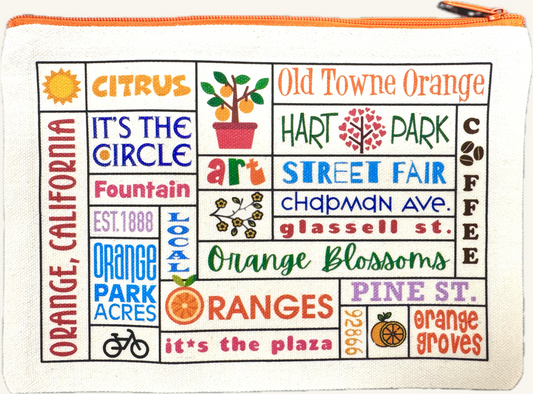 CITRUS
Old Towne Orange
ORANGE, CALIFORNIA
IT'S THE
CIRCLE
HART PARK
COFFEE
art
STREET FAIR
Fountain
CHAPMAN AVE.
EST.1888
LOCAL
glassell st.
ORANGE
PARK
ACRES
Orange Blossoms
ORANGES
PINE ST.
92866
orange
groves
it*s the plaza